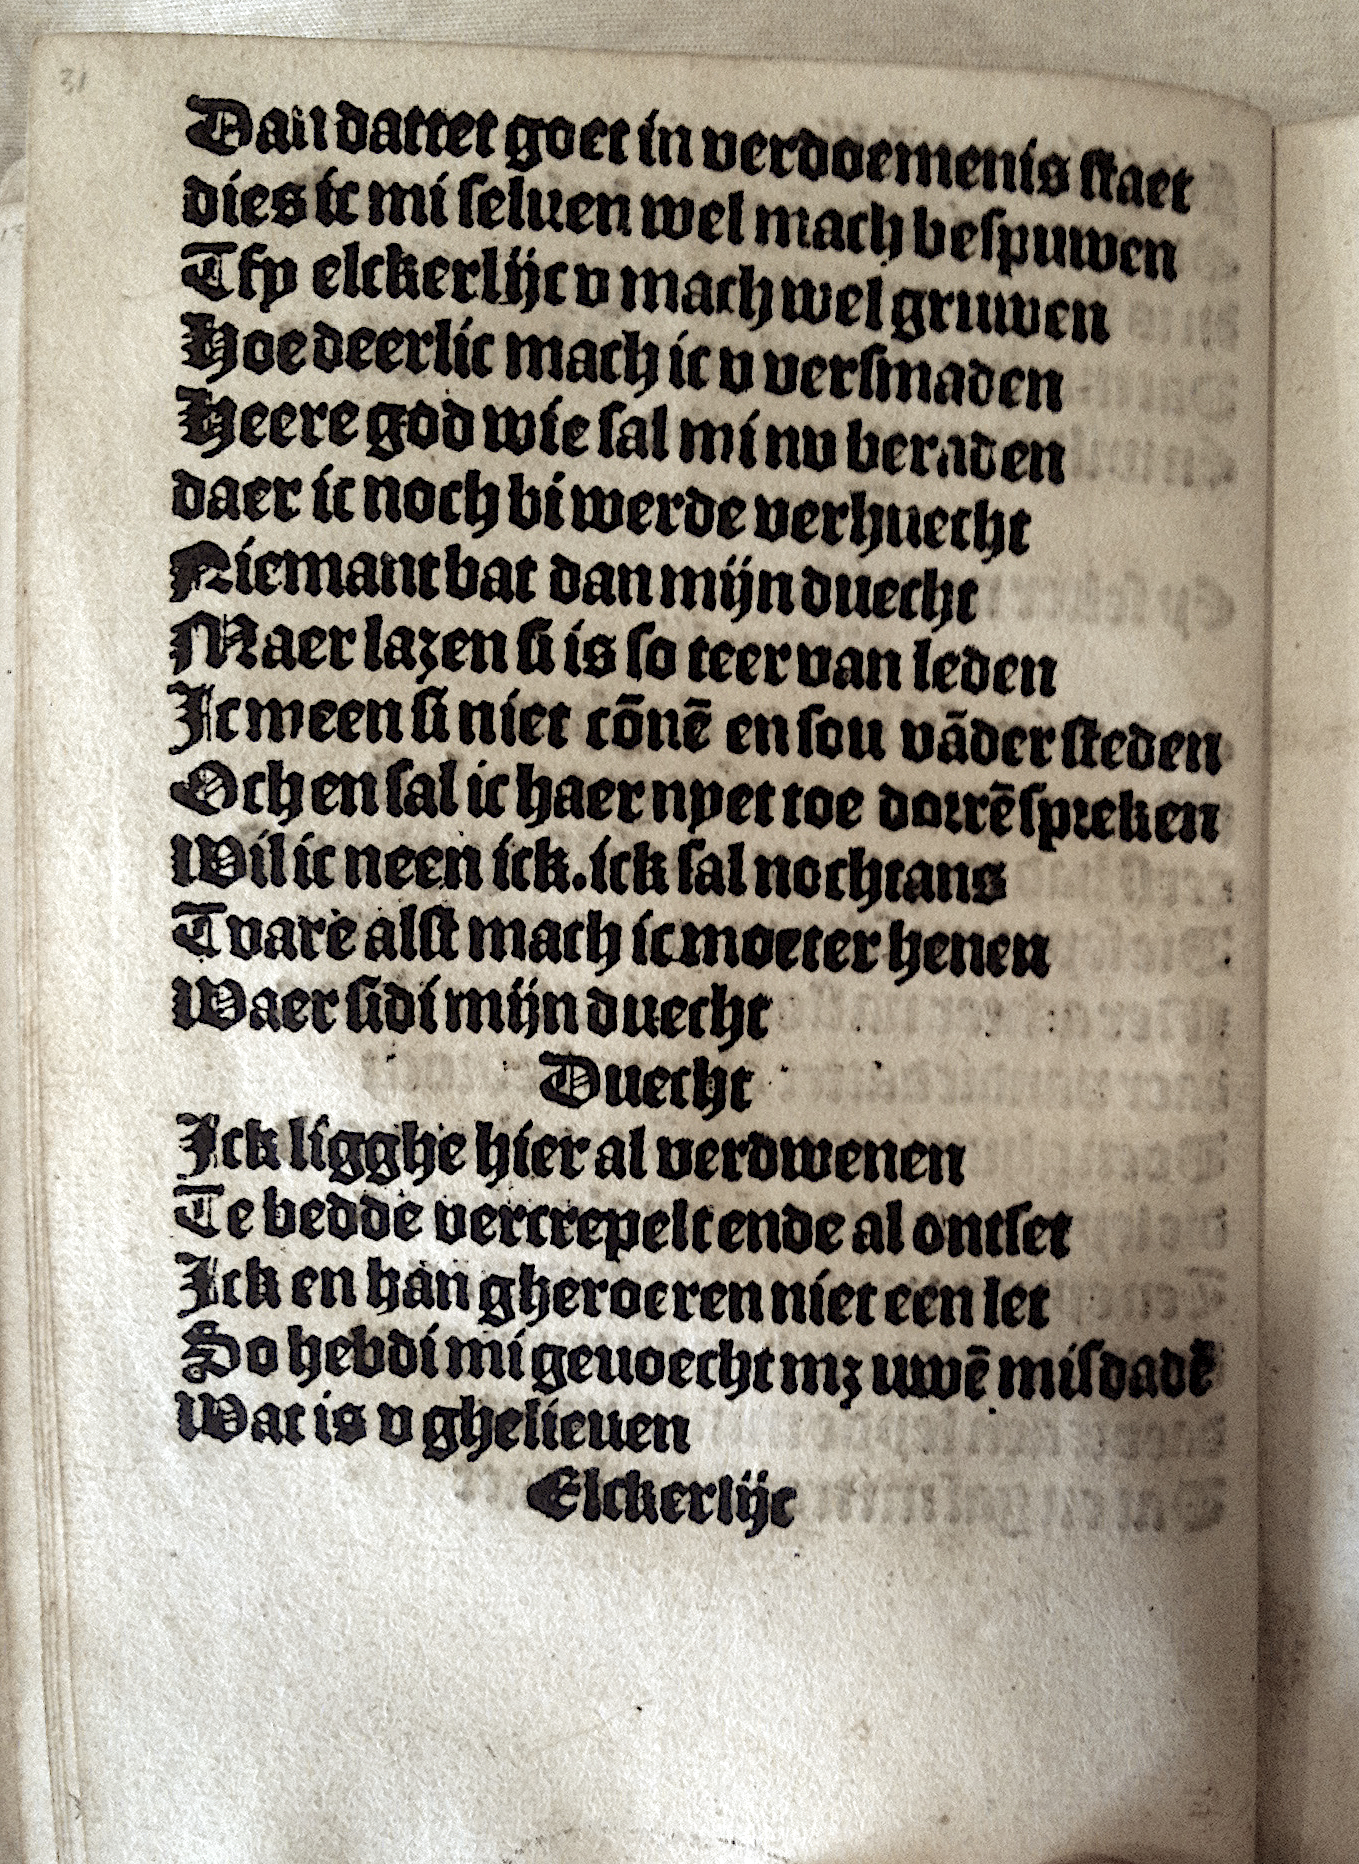 31
Dan dattet goet in verdoemenis staet
dies ic mi seluen wel mach bespuwen
Tfy elckerlijc v mach wel gruwen
Hoe deerlic mach ic v versmaden
Heere god wie sal mi nv beraden
daer ic noch bi werde verhuecht
Niemant bat dan mijn duecht
Maer lazen si is so teer van leden
Ic meen si niet cōnē en sou vāder steden
Och en sal ic haer nyet toe dorrē spreken
Wil ic neen ick. ick sal nochtans
Tvare alst mach ic moeter henen
Waer sidi mijn duecht
Duecht
Ick ligghe hier al verdwenen
Te bedde vercrepelt ende al ontset
Ick en kan gheroeren niet een let
So hebdi mi geuoecht mz uwē misdadē
Wat is v ghelieuen
Elckerlijc